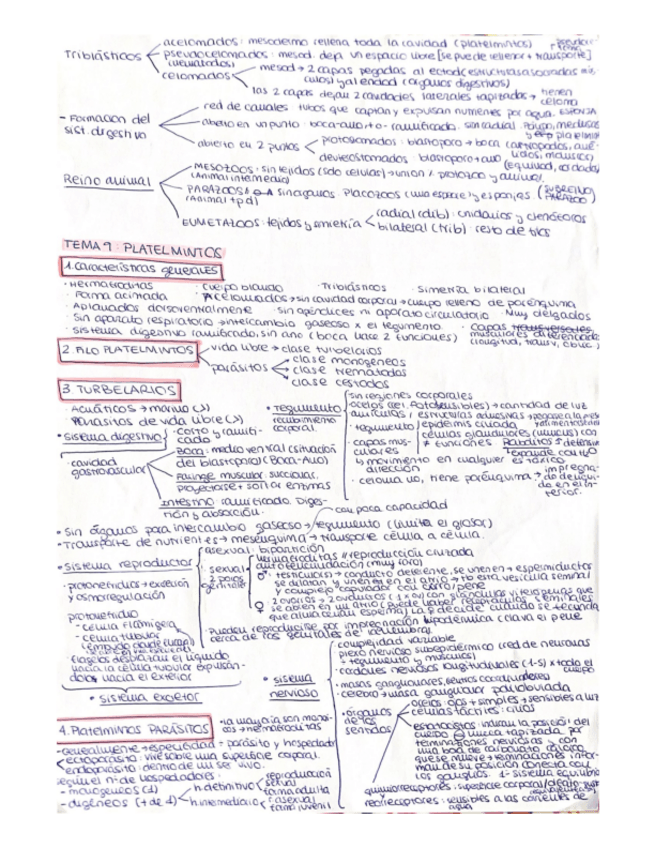 acelomados: mesodermo rellena toda la cavidad (platelmintos)
Tribiásticos
pseudocelomados: mesod. deja un espacio libre [se puede rellenar + transporte]
(nematodos)
celomados
mesod → 2 capas pegadas al ectod (estructuras asociadas
culos) y al endod (órganos digestivos)
las 2 capas dejan 2 cavidades laterales tapizadas → tienen
celoma
- Formación del
sist. digestivo
red de canales: tubos que captan y expulsan nutrientes por agua. ESPONJA
abierto en un punto: boca-ano
abierto en 2 puntos
protostomados: blastoporo → boca (artrópodos, ane-
lidos, moluscos)
deuterostomados: blastoporo → ano (equinod, cordados)
Reino animal
MESOZOOS: sin tejidos (solo células) → unión / protozoo y animal.
(Animal intermedio)
PARAZOOS: sin órganos. Placozoos (una especie) y esponjas
EUMETAZOOS: tejidos y simetría
radial (dib): cnidarios y ctenóforos
bilateral (trib): resto de tros
TEMA 9: PLATELMINTOS
1. Características generales
· Hermafroditas · Cuerpo blando · Tribiásticos · Simetría bilateral
· Forma acintada · Acelomados → sin cavidad corporal → cuerpo relleno de parénquima
· Aplanados dorsoventralmente · Sin apéndices ni aparato circulatorio · Muy delgados
· Sin aparato respiratorio → intercambio gaseoso x el tegumento
· Sistema digestivo ramificado, sin ano (boca hace 2 funciones)
· capas transversales
musculares diferenciadas
(longitud, transv, oblic)
2. FILO PLATELMINTOS
vida libre → clase turbelarios
parásitos
clase monogéneos
clase trematodos
clase cestodos
3. TURBELARIOS
· Acuáticos → marino (>)
· Parásitos de vida libre (>)
· Sistema digestivo
· corto y ramifi-
cado
· Boca: medio ventral (situación
del blastoporo) (Boca-Ano)
· Faringe muscular: succionar.
proyectarse + soltar enzimas
· Intestino: ramificado. Diges-
tión y absorción.
· cavidad
gastrovascular
· Tegumento
recubrimiento
corporal
· sin regiones corporales
· ocelos (cel. fotosensibles) → cantidad de luz
· tegumento / epidermis ciliada
células glandulares (mucus) con
≠ funciones
· capas mus-
culares
y movimiento en cualquier
dirección
· celoma no, tiene parénquima
con poca capacidad
· Sin órganos para intercambio gaseoso → tegumento (limita el grosor)
· Transporte de nutrientes → mesénquima → transporte célula a célula.
· Sistema reproductor
asexual: bipartición
sexual
hermafroditas // reproducción cruzada
autofecundación (muy raro)
♂: testículo(s) → conducto deferente, se unen → espermiductos
se dilatan y unen en el atrio → to esta vesícula seminal
y complejo copulador con cirro / pene
♀: 2 ovarios → 2 oviductos (1 x ov) con glándulas vitelógenas que
se abren en un atrio (puede haber receptáculos seminales
que almacenan esperma) La ♀ decide cuándo se fecunda
· Pueden reproducirse por impregnación hipodérmica (clava el pene
cerca de los genitales de la hembra)
· protonefridios → excreción
y osmorregulación
protonefridio
- célula flamígera
- célula tubular
· flagelos desplazan el líquido
hacia la célula tubular expulsán-
dolo hacia el exterior
· sistema excretor
· sistema
nervioso
· complejidad variable
· plexo nervioso subepidérmico (red de neuronas
→ tegumento y músculos)
· cordones nerviosos longitudinales (1-5) x todo el
cuerpo
· masas ganglionares, centros coordinadores
· cerebro → masa ganglionar
· órganos
de los
sentidos
ocelos: ojos + simples → sensibles a luz
células táctiles: cilios
estatocistos: indican la posición del
cuerpo
tapizada por
terminaciones nerviosas y con
una bola de carbonato cálcico
que se mueve → terminaciones infor-
man de su posición conecta con
los ganglios. 1- sistema equilibrio
quimiorreceptores: superficie corporal
reorreceptores: sensibles a las corrientes de
agua
4. Platelmintos PARÁSITOS
· la mayoría son
→ hermafroditas
- Generalmente → especificidad = parásito y hospedador
ectoparásito: vive sobre una superficie corporal.
endoparásito: dentro de un ser vivo.
según el nº de hospedadores:
- monogéneos (1)
- digéneos (+ de 1)
h. definitivo
reproducción
sexual
forma adulta
h. intermediario
r. asexual
forma juvenil